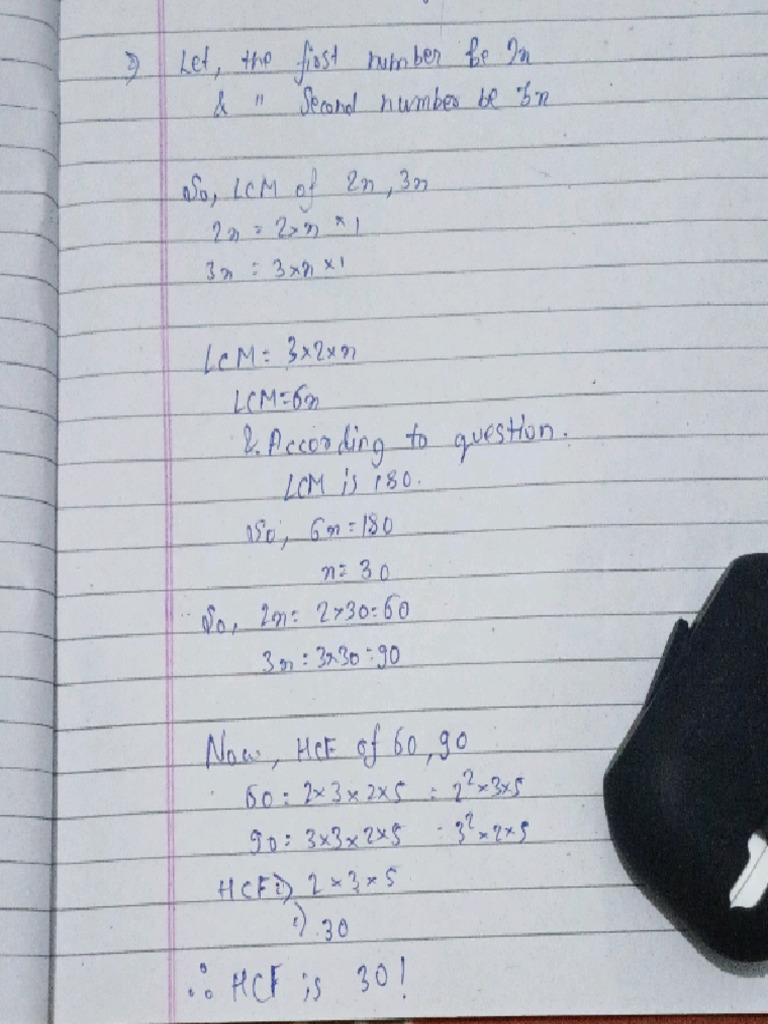 Let, the first number be 2n
& " Second number be 3n
So, LCM of 2n, 3n
2n = 2×n×1
3n = 3×n×1
LCM = 3×2×n
LCM=6n
& According to question.
LCM is 180.
So, 6n=180
n= 30
So, 2n= 2×30=60
3n = 3×30=90
Now, HCF of 60, 90
60 = 2×3×2×5 = 2²×3×5
90 = 3×3×2×5 = 3²×2×5
HCF ⇒ 2×3×5
⇒ 30
∴ HCF is 30!